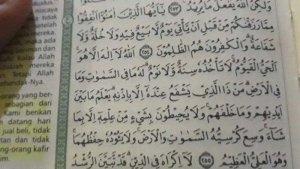 وَلٰكِنَّ اللّٰهَ يَفْعَلُ مَا يُرِيدُ ﴿٢٥٣﴾ يٰٓاَيُّهَا الَّذِينَ اٰمَنُوٓا اَنْفِقُوا
مِمَّا رَزَقْنٰكُمْ مِنْ قَبْلِ اَنْ يَأْتِيَ يَوْمٌ لَا بَيْعٌ فِيهِ وَلَا خُلَّةٌ وَلَا
شَفَاعَةٌ وَالْكٰفِرُونَ هُمُ الظّٰلِمُونَ ﴿٢٥٤﴾ اَللّٰهُ لَآ اِلٰهَ اِلَّا هُوَ
الْحَيُّ الْقَيُّومُ لَا تَأْخُذُهُ سِنَةٌ وَلَا نَوْمٌ لَهُ مَا فِي السَّمٰوٰتِ وَمَا
فِي الْاَرْضِ مَنْ ذَا الَّذِي يَشْفَعُ عِنْدَهُ اِلَّا بِاِذْنِهِ يَعْلَمُ مَا بَيْنَ
اَيْدِيهِمْ وَمَا خَلْفَهُمْ وَلَا يُحِيطُونَ بِشَيْءٍ مِنْ عِلْمِهِ اِلَّا بِمَا
شَآءَ وَسِعَ كُرْسِيُّهُ السَّمٰوٰتِ وَالْاَرْضَ وَلَا يَئُودُهُ حِفْظُهُمَا
وَهُوَ الْعَلِيُّ الْعَظِيمُ ﴿٢٥٥﴾ لَآ اِكْرَاهَ فِي الدِّينِ قَدْ تَبَيَّنَ الرُّشْدُ
mereka
Allah
-Nya.
yang ber-
sebagian dari
Kami berikan
datang
jual beli, tidak
dan tidak
kafir